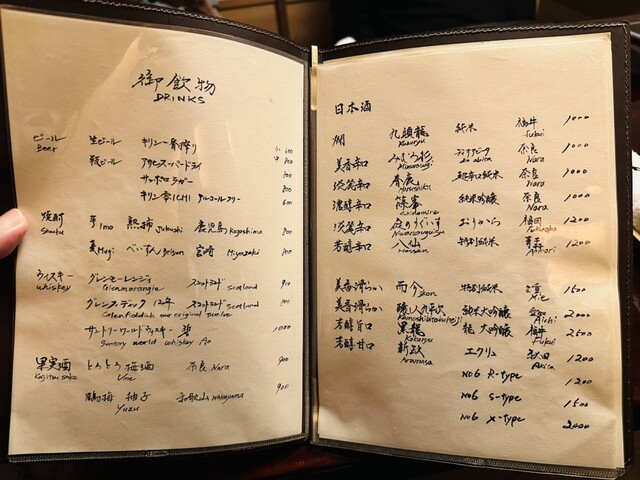 御飲物
DRINKS
ビール 生ビール キリン一番搾り 小 600
Beer 中 800
瓶ビール アサヒスーパードライ 800
サッポロラガー 800
キリン零ICHI アルコールフリー 600
焼酎 芋 Imo 熟柿 Jukushi 鹿児島 Kagoshima 800
麦 Mugi べいすん Beisun 宮崎 Miyazaki 800
ウィスキー グレンモーレンジィ スコットランド 900
whiskey Glenmorangie scotland
グレンフィディック 12年 スコットランド scotland
Glenfiddich our original twelve
サントリーワールドウィスキー 碧 1000
Suntory world whiskey Ao
果実酒 とろとろ梅酒 奈良 Nara 900
Kajitsu sake Ume
鶴梅 柚子 和歌山 Wakayama 900
Yuzu
日本酒
燗 九頭龍 純米 福井 1000
Kuzuryu Fukui
美香辛口 みむろ杉 奈良 1000
Mimurosugi Nara
淡麗辛口 春鹿 超辛口純米 奈良 1000
Harushika Nara
濃醇辛口 篠峯 純米吟醸 奈良 1000
Nara
淡麗辛口 庭のうぐいす おうから 福岡 1200
Niwanouguisu Fukuoka
芳醇辛口 八仙 特別純米 青森 1200
Hassen Aomori
美香滑らか 而今 特別純米 三重 1500
Mie
美香滑らか 醸し人九平次 純米大吟醸 愛知 2000
Kamoshibitokuheiji Aichi
芳醇旨口 黒龍 龍 大吟醸 福井 2500
Kokuryu Fukui
芳醇甘口 新政 エクリュ 秋田 1200
Aramasa Akita
NO6 R-type 1200
NO6 S-type 1500
NO6 X-type 2000